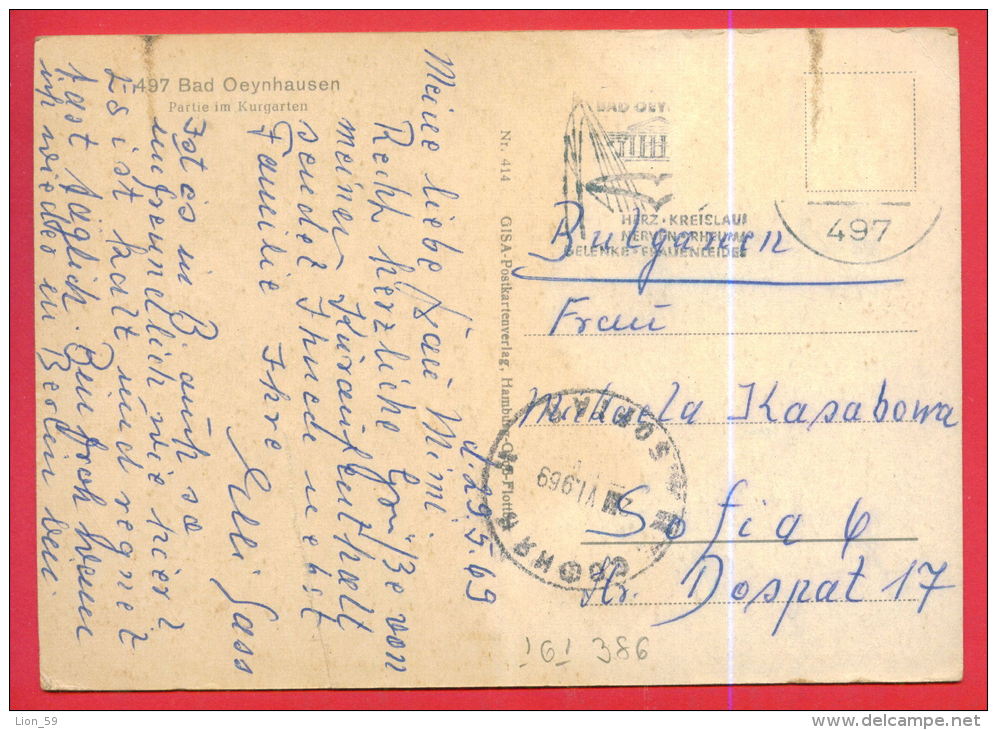 497 Bad Oeynhausen
Partie im Kurgarten
d. 29.5.69
Meine liebe Frau Mimi,
Recht herzliche Grüße von
meinem Kuraufenthalt
sendet Ihnen u. ebst
Familie Ihre
Elli Gass
Ist es in B. auch so
unfreundlich, wie hier?
Es ist kalt und regnet
fast täglich. Bin froh wenn
ich wieder in Berlin bin
Nr. 414 GISA-Postkartenverlag, Hamburg-Groß-Flottbek
BAD OEY
HERZ · KREISLAUF
NERVEN · RHEUMA
GELENKE · FRAUENLEIDEN
497
Bulgarien
Frau
Michaela Kasabowa
Sofia 6
Str. Dospat 17
SOFIA
VI.969
СОФИЯ
161 386
Lion_59